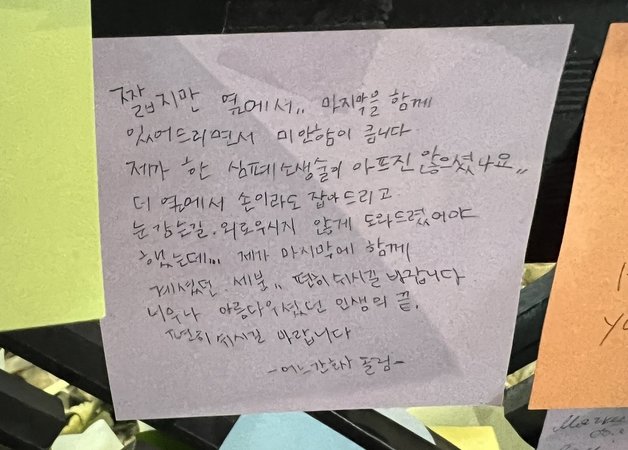 짧지만 옆에서,, 마지막을 함께
있어드리면서 미안함이 큽니다
제가 한 심폐소생술이 아프진 않으셨나요,,
더 옆에서 손이라도 잡아드리고
눈감는길. 외로우시지 않게 도와드렸어야
했는데... 제가 마지막에 함께
계셨던 세분,, 편히 쉬시길 바랍니다
너무나 아름다우셨던 인생의 끝.
편히 쉬시길 바랍니다
-어느간호사 올림-